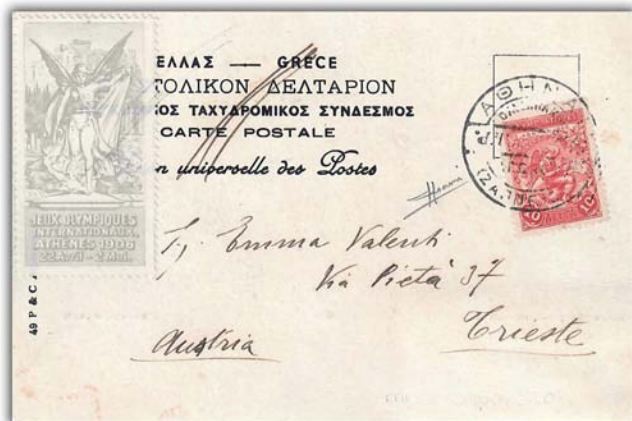 ΕΛΛΑΣ — GRECE
ΤΟΛΙΚΟΝ ΔΕΛΤΑΡΙΟΝ
ΟΣ ΤΑΧΥΔΡΟΜΙΚΟΣ ΣΥΝΔΕΣΜΟΣ
CARTE POSTALE
n universelle des Postes
JEUX OLYMPIQUES
INTERNATIONAUX
ATHÈNES 1906
22 Avril - 2 Mai.
ΑΘΗΝΑΙ
10 ΛΕΠΤΑ 10
Emma Valenti
Via Pietà 37
Trieste
Austria
49 P & C